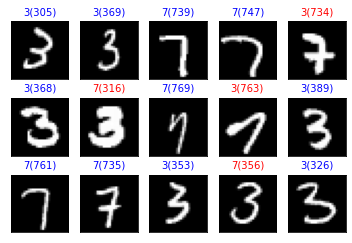 3(305) 3(369) 7(739) 7(747) 3(734)
3 3 7 7 7
3(368) 7(316) 7(769) 3(763) 3(389)
3 3 7 7 3
7(761) 7(735) 3(353) 7(356) 3(326)
7 7 3 3 3